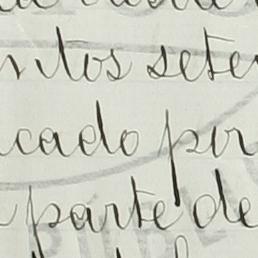 ntos sete
cado por
parte de